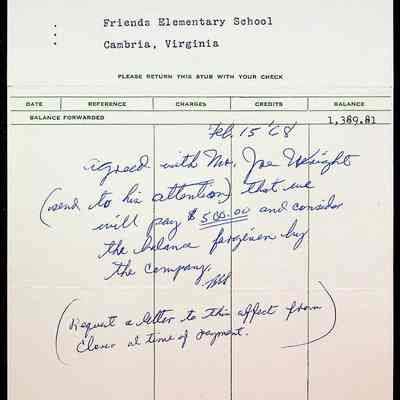 Friends Elementary School
Cambria, Virginia
PLEASE RETURN THIS STUB WITH YOUR CHECK
DATE REFERENCE CHARGES CREDITS BALANCE
BALANCE FORWARDED 1,389.81
Feb. 15 '68
agreed with Mr. Joe Wright
(send to his attention) that we
will pay $500.00 and consider
the balance forgiven by
the company.
(Request a letter to this affect from
at time of payment.